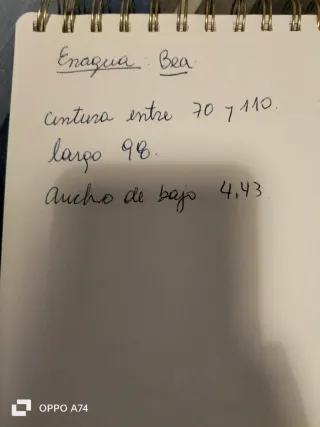 Enagua: Bea.
cintura entre 70 y 110.
largo 98.
Ancho de bajo 4,43
OPPO A74